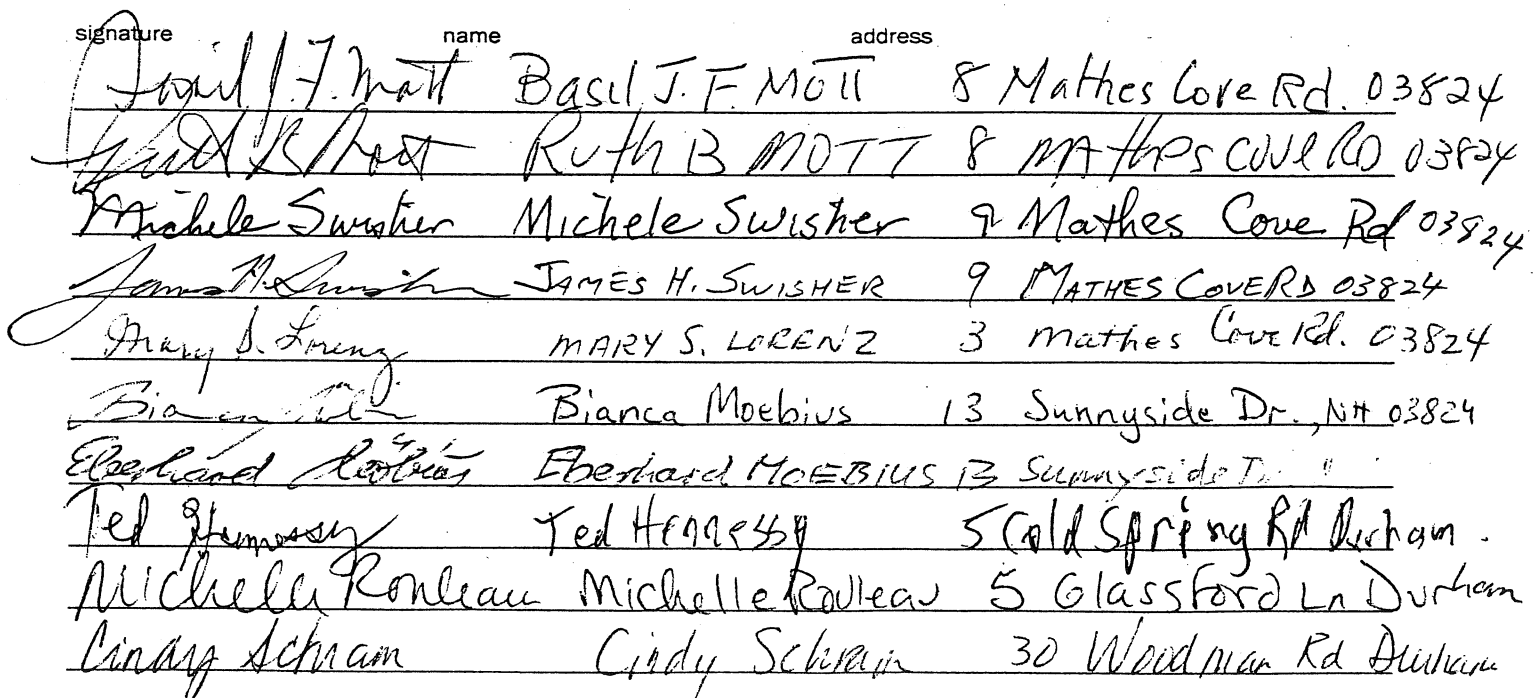 signature name address
Basil J. F. Mott Basil J. F. MOTT 8 Mathes Cove Rd. 03824
Ruth B Mott Ruth B MOTT 8 MAthes COVE RD 03824
Michele Swisher Michele Swisher 9 Mathes Cove Rd 03824
James H. Swisher JAMES H. SWISHER 9 MATHES COVE RD 03824
Mary S. Lorenz MARY S. LORENZ 3 Mathes Cove Rd. 03824
Bianca Bianca Moebius 13 Sunnyside Dr., NH 03824
Eberhard Möbius Eberhard MOEBIUS 13 Sunnyside
Ted Hennessy Ted Hennessy 5 Cold Spring Rd Durham.
Michelle Rouleau Michelle Rouleau 5 Glassford Ln Durham
Cindy Schram Cindy Schram 30 Woodman Rd Durham